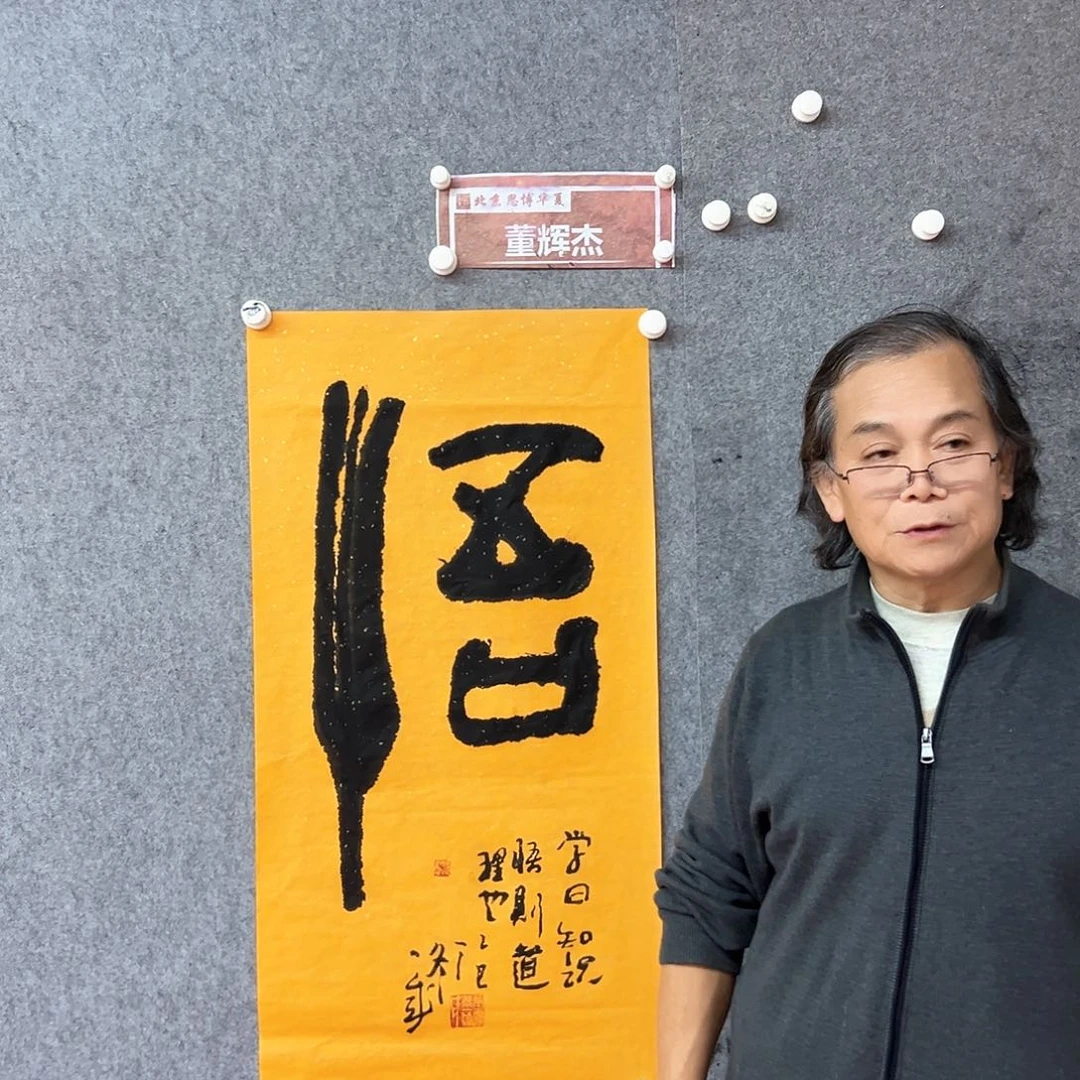 北京思博华夏
董辉杰
悟
学曰知识
悟则道
理也